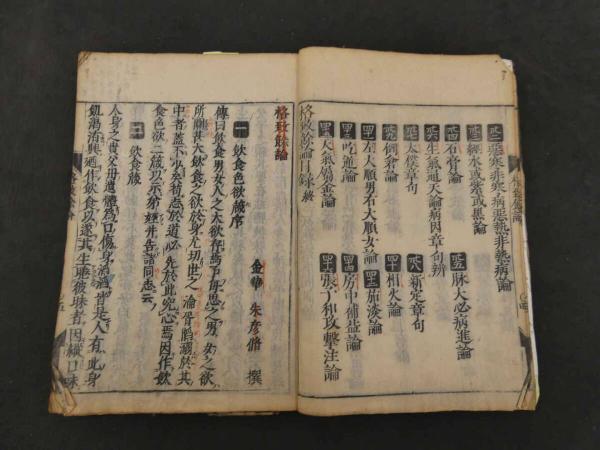 惡寒非寒病惡熱非熱病論
經水或紫或黑論
石膏論 脉大必病進論
生氣通天論病因章句辨
太僕章句 新定章句
倒倉論 相火論
左大順男右大順女論 茹淡論
吃逆論 房中補益論
天氣屬金論 張子和攻擊注論
格致餘論目録終
格致餘論
金華 朱彦脩 撰
一 飲食色欲箴序
傳曰飲食男女人之大欲存焉予每思之男女之欲
所關甚大飲食之欲於身尤切世之淪胥陷溺於其
中者蓋不少矣苟志於道必先於此究心焉因作飲
食色欲二箴以示弟姪并告諸同志云
二 飲食箴
人身之貴父母遺體為口傷身滔滔皆是人有此身
飢渴洊興廼作飲食以遂其生睠彼昧者因縱口味